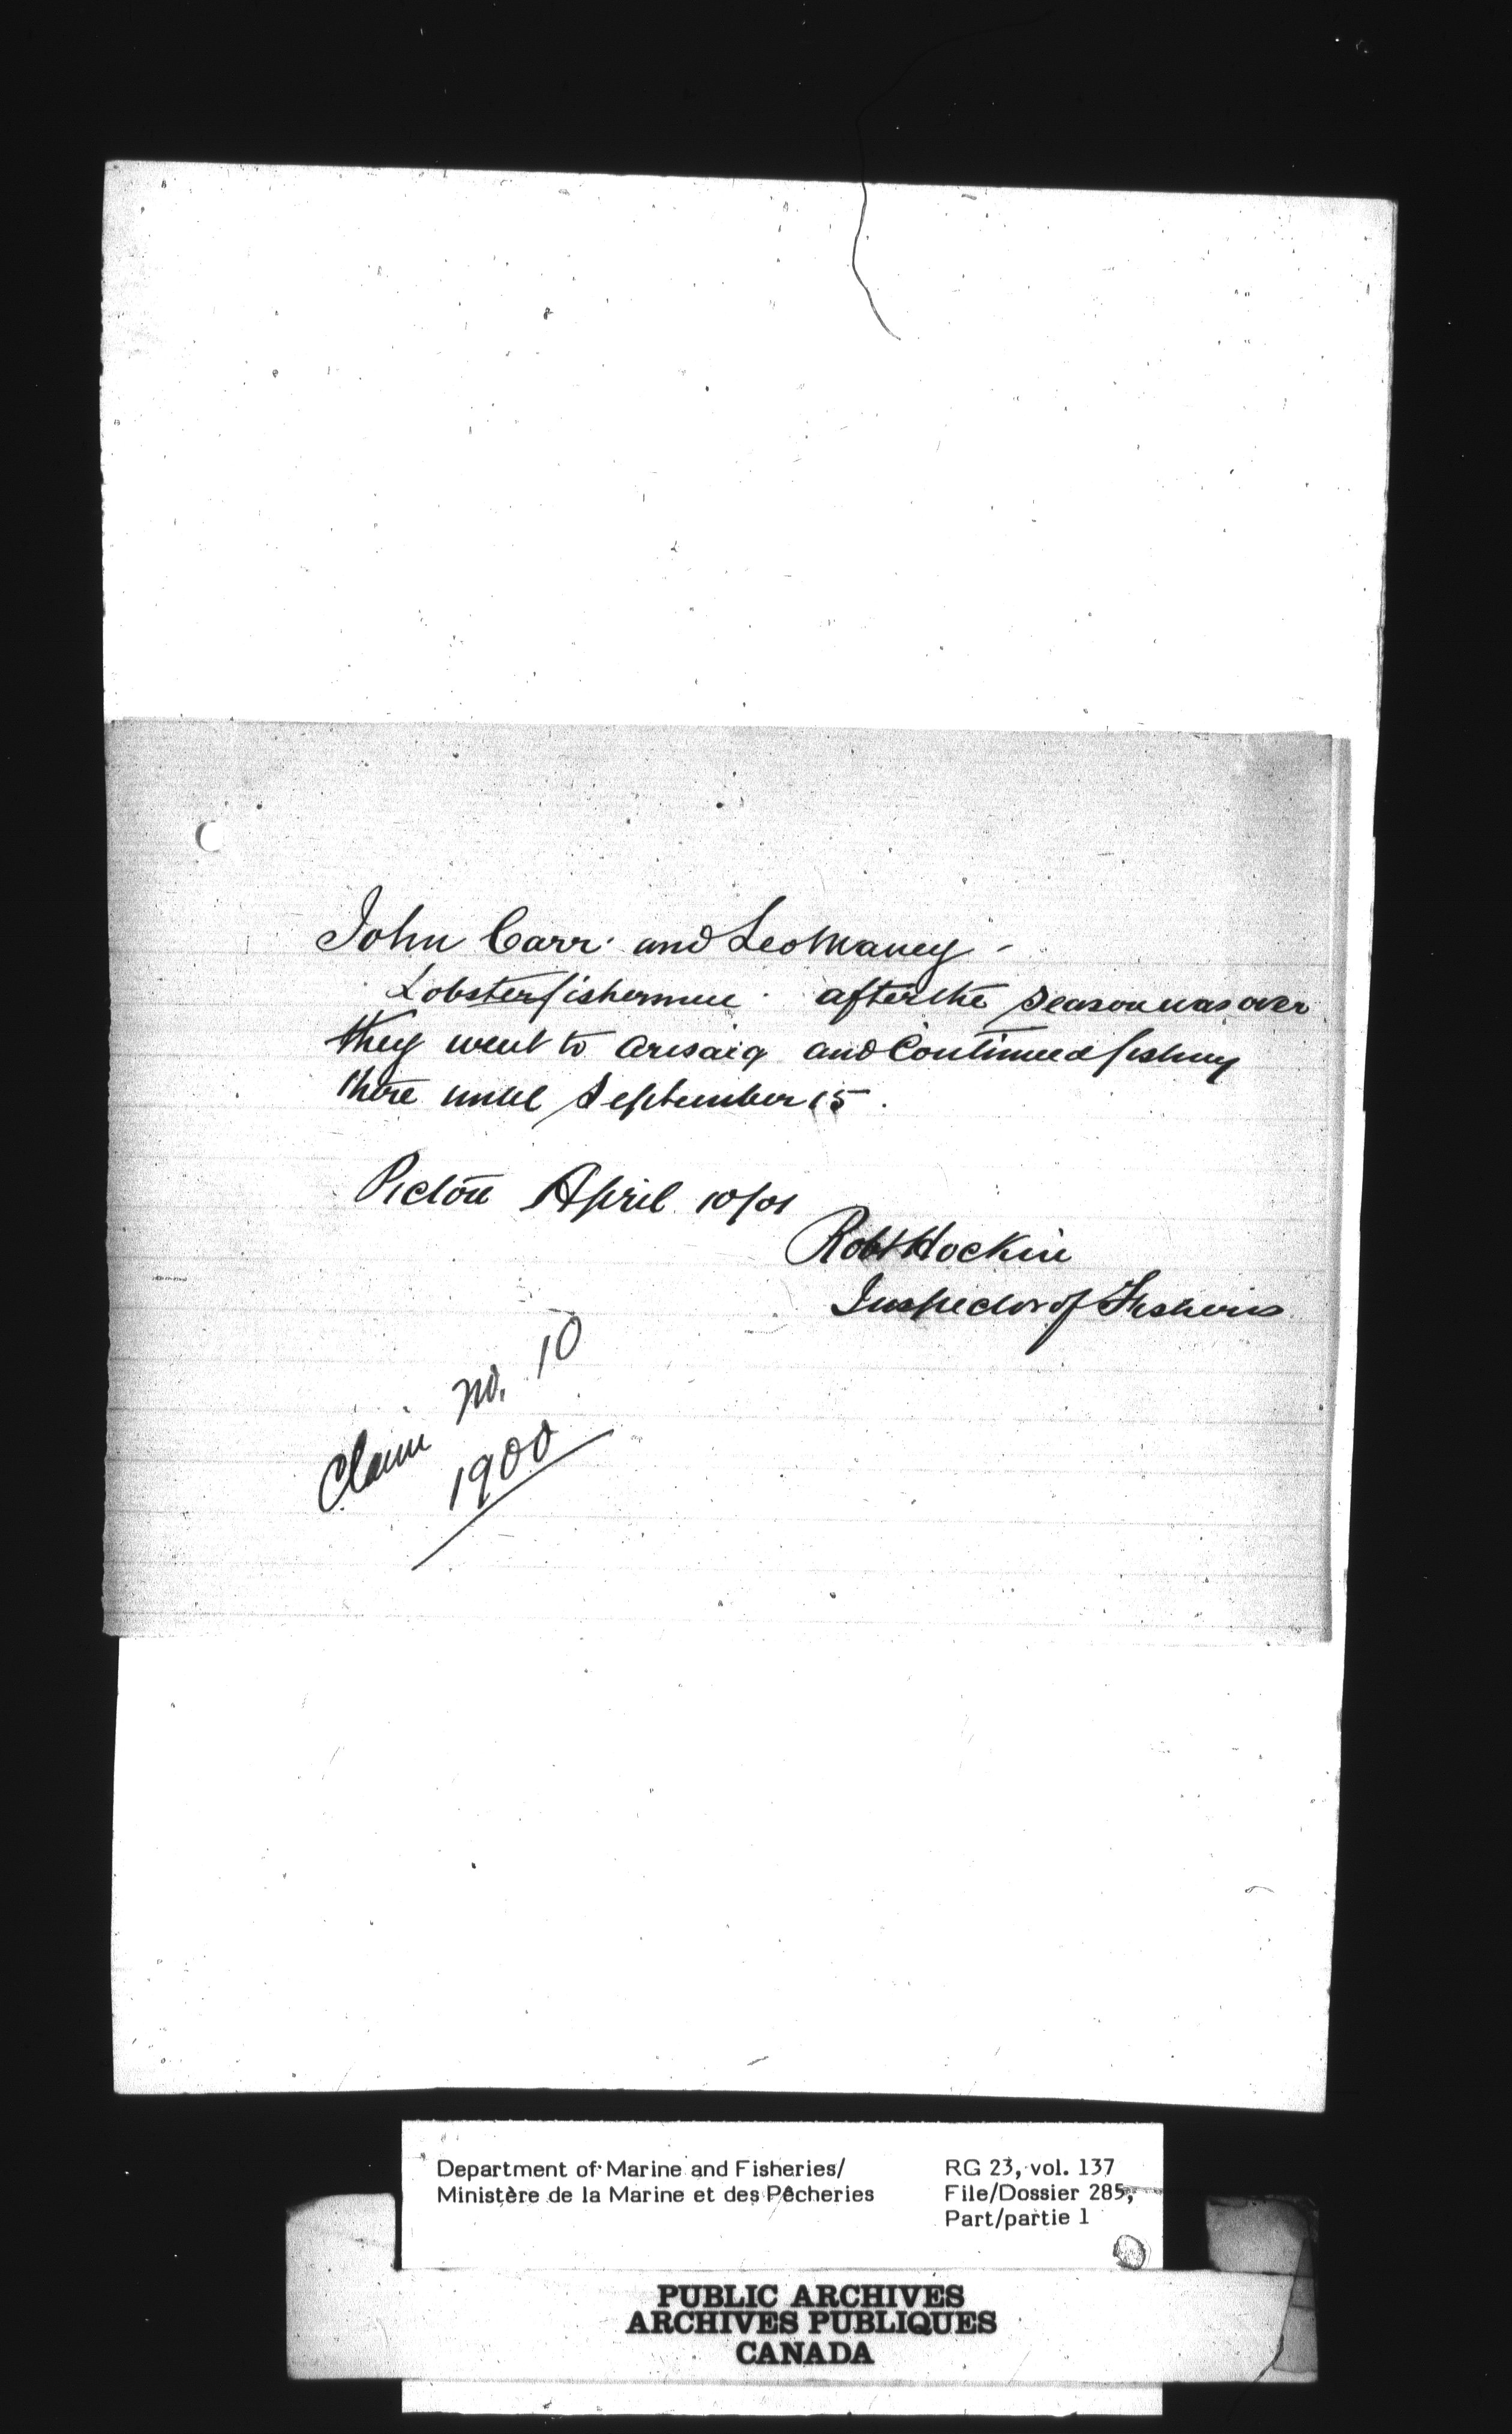 John Carr and Leo Maney -
Lobster fishermen. after the season was over
they went to Arisaig and Continued fishing
there until September 15.
Pictou April 10/01
Robt Hockin
Inspector of Fisheries
Claim No. 10
1900
Department of Marine and Fisheries/
Ministère de la Marine et des Pêcheries
RG 23, vol. 137
File/Dossier 285,
Part/partie 1
PUBLIC ARCHIVES
ARCHIVES PUBLIQUES
CANADA